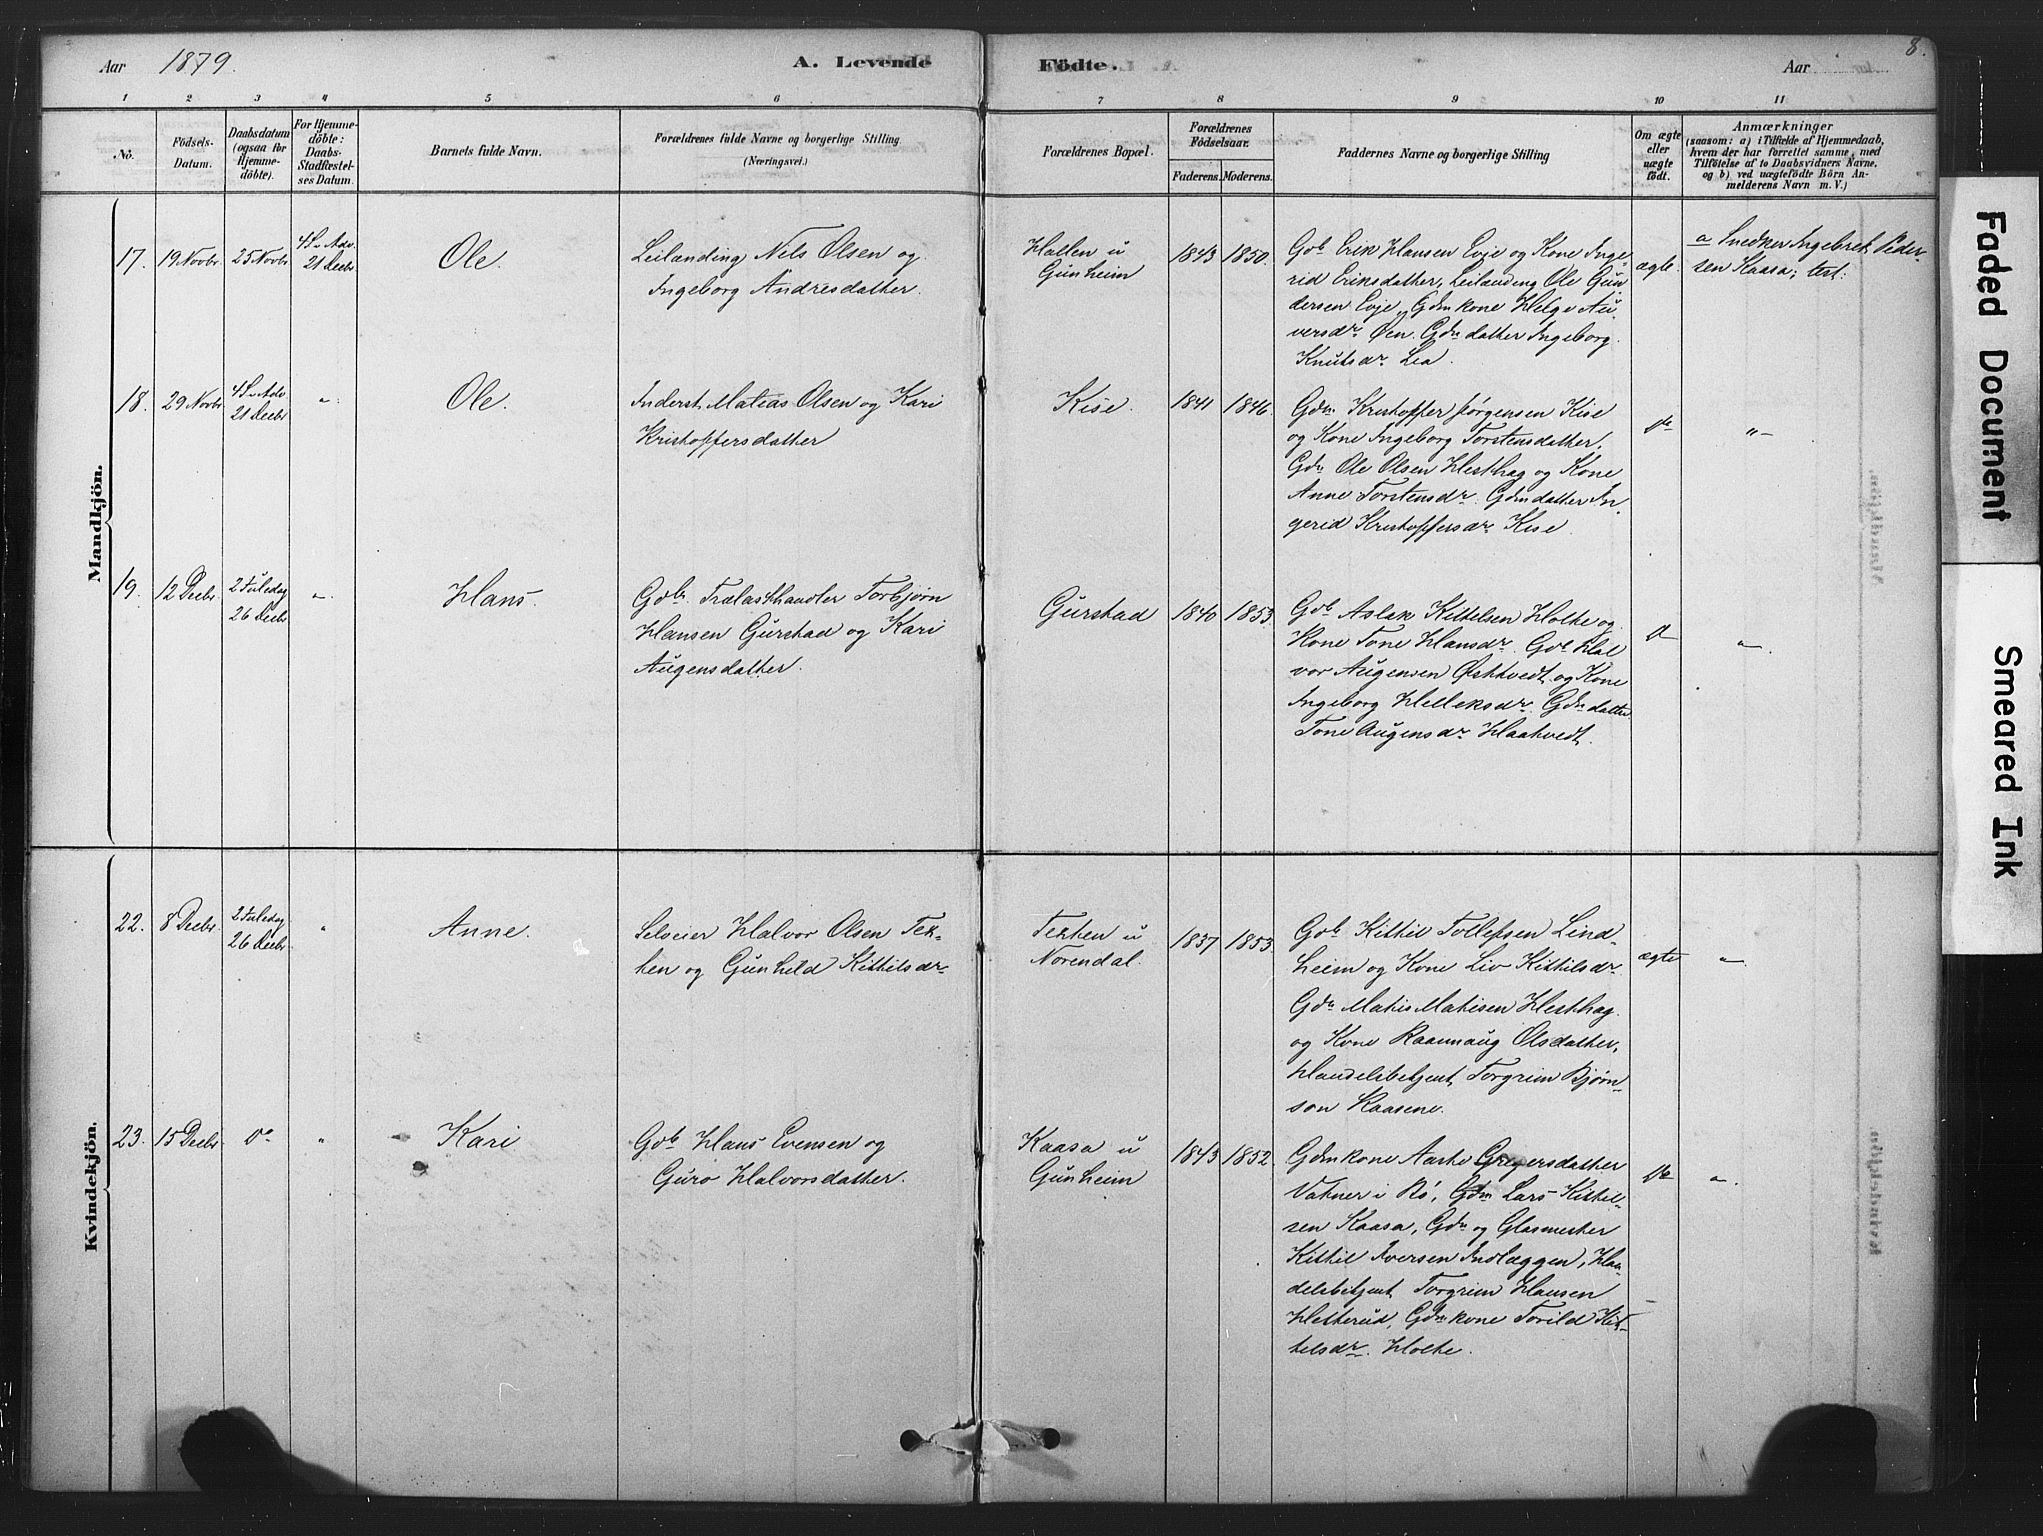 Aar 1879.
A. Levende
Födte.
Aar
8.
1 2 3 4 5 6 7 8 9 10 11
No.
Födsels-
Datum.
Daabsdatum
(ogsaa for
Hjemme-
döbte).
For Hjemme-
döbte:
Daabs-
Stadfæstel-
ses Datum.
Barnets fulde Navn.
Forældrenes fulde Navne og borgerlige Stilling
(Næringsvei.)
Forældrenes Bopæl.
Forældrenes
Födselsaar.
Faderens. Moderens.
Faddernes Navne og borgerlige Stilling
Om ægte
eller
uægte
födt.
Anmærkninger
(saasom: a) i Tilfælde af Hjemmedaab,
hvem der har forrettet samme, med
Tilföielse af to Daabsvidners Navne,
og b) ved uægtefödte Börn An-
melderens Navn m. V.)
Mandkjön.
17. 19 Novbr 25 Novbr
4 S. Adv.
21 Decbr
Ole.
Leilænding Nils Olsen og
Ingeborg Andresdatter.
Hallen u
Gunheim
1843 1850.
Gbr Erik Hansen Evje og Kone Inge-
rid Eriksdatter, Leilænding Ole Gun
dersen Evje, Gdmkone Helge Au
versdr Øen. Gdm datter Ingeborg
Knutsdr Lea.
ægte.
a Snedker Ingebret Peder
sen Kaasa; test:
18. 29 Novbr
4 S. Adv
21 Decbr
"
Ole.
Inderst Matias Olsen og Kari
Kristoffersdatter
Kise.
1841 1846.
Gdm Kristoffer Jørgensen Kise
og Kone Ingeborg Torstensdatter,
Gdm Ole Olsen Hesthag og Kone
Anne Torstensdr. Gdmdatter In
gerid Kristoffersdr Kise.
do
"
19. 12 Decbr
2 Juledag
26 Decbr
"
Hans.
Gbr. Trælasthandler Torbjørn
Hansen Gurstad og Kari
Augensdatter.
Gurstad
1840 1853.
Gbr Aslak Kittelsen Holte og
Kone Tone Hansdr. Gbr Hal
vor Augensen Østtvedt og Kone
Ingeborg Helleksdr. Gdm datter
Tone Augensdr Haatvedt.
do
"
Kvindekjön.
22. 8 Decbr.
2 Juledag
26 Decbr
"
Anne.
Selveier Halvor Olsen Tek-
ten og Gunhild Kittilsdr
Tekten u
Norendal.
1837 1853
Gbr Kittil Tollefsen Lind-
heim og Kone Liv Kittilsdr
Gdm Matis Matisen Hesthag
og Kone Raannaug Olsdatter,
Handelsbetjent Torgrim Bjørn-
son Kaasene.
ægte
"
23. 15 Decbr. do "
Kari
Gbr Hans Evensen og
Guro Halvorsdatter.
Kaasa u
Gunheim
1843 1852.
Gdmkone Aaste Gregersdatter
Vatnar i Bø, Gdm Lars Kittil-
sen Kaasa, Gdm og Glasmester
Kittil Iversen Indlæggen, Han
delsbetjent Torgrim Hansen
Hetterud, Gdmkone Torild Kit-
telsdr. Holte.
do
"
Faded Document
Smeared Ink